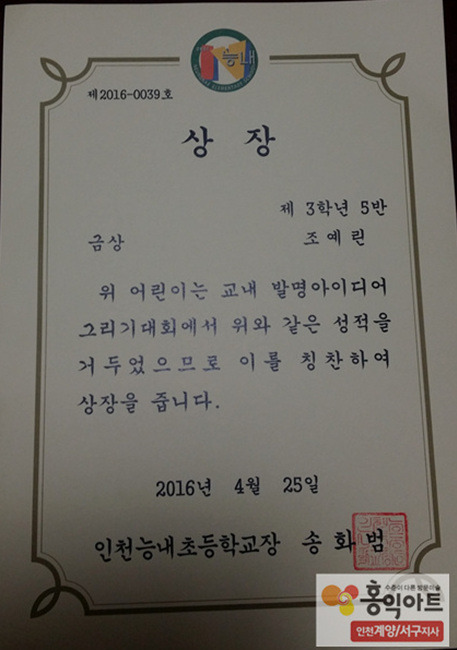 능내
제2016-0039호
상 장
제 3학년 5반
금상 조예린
위 어린이는 교내 발명아이디어
그리기대회에서 위와 같은 성적을
거두었으므로 이를 칭찬하여
상장을 줍니다.
2016년 4월 25일
인천능내초등학교장 송화범
수준이 다른 방문미술
홍익아트
인천계양/서구지사